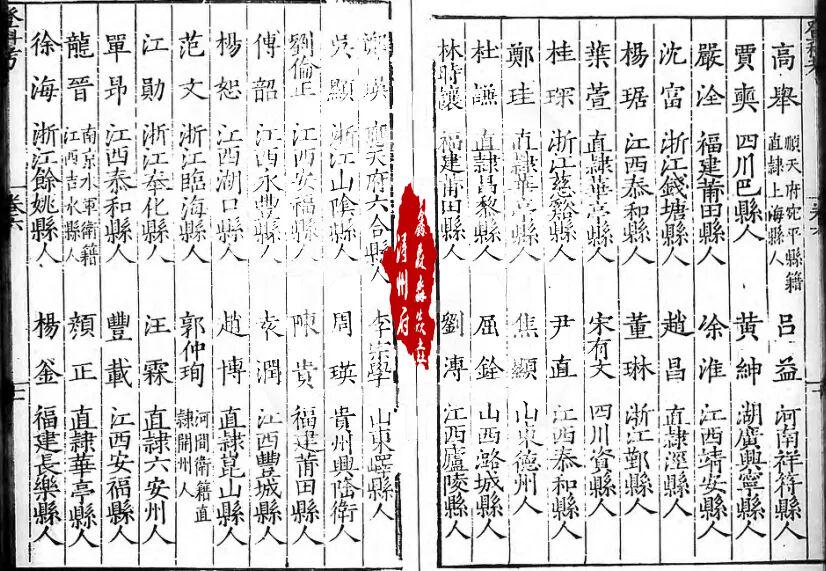 登科考 卷六
高舉 順天府宛平縣籍直隸上海縣人 呂益 河南祥符縣人
賈奭 四川巴縣人 黃紳 湖廣興寧縣人
嚴洤 福建莆田縣人 徐淮 江西靖安縣人
沈富 浙江錢塘縣人 趙昌 直隸涇縣人
楊琚 江西泰和縣人 董琳 浙江鄞縣人
葉萱 直隸華亭縣人 宋有文 四川資縣人
桂琛 浙江慈谿縣人 尹直 江西泰和縣人
鄭珪 直隸華亭縣人 焦顯 山東德州人
杜謙 直隸昌黎縣人 屈銓 山西潞城縣人
林時讓 福建莆田縣人 劉溥 江西廬陵縣人
潯州府
瑛 天府六合縣人 李崇學 山東嶧縣人
吳顯 浙江山陰縣人 周瑛 貴州興隆衛人
劉倫正 江西安福縣人 陳貴 福建莆田縣人
傅韶 江西永豐縣人 袁潤 江西豐城縣人
楊恕 江西湖口縣人 趙博 直隸崑山縣人
范文 浙江臨海縣人 郭仲珣 河間衛籍直隸開州人
江勛 浙江奉化縣人 汪霖 直隸六安州人
單昂 江西泰和縣人 豐載 江西安福縣人
龍晉 南京水軍衛籍江西吉水縣人 顏正 直隸華亭縣人
徐海 浙江餘姚縣人 楊釜 福建長樂縣人
登科考 卷六